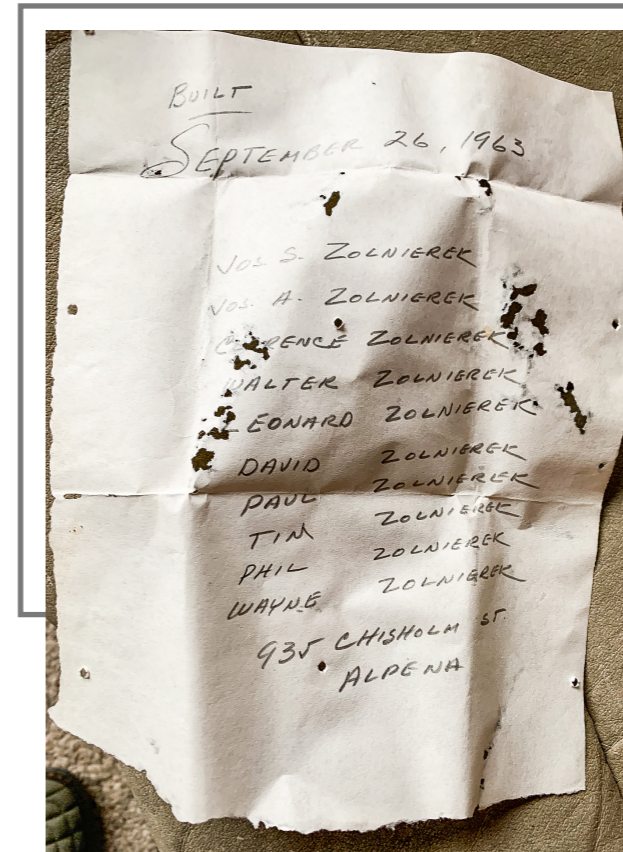 BUILT
SEPTEMBER 26, 1963
JOS. S. ZOLNIEREK
JOS. A. ZOLNIEREK
CLARENCE ZOLNIEREK
WALTER ZOLNIEREK
LEONARD ZOLNIEREK
DAVID ZOLNIEREK
PAUL ZOLNIEREK
TIM ZOLNIEREK
PHIL ZOLNIEREK
WAYNE ZOLNIEREK
935 CHISHOLM ST.
ALPENA